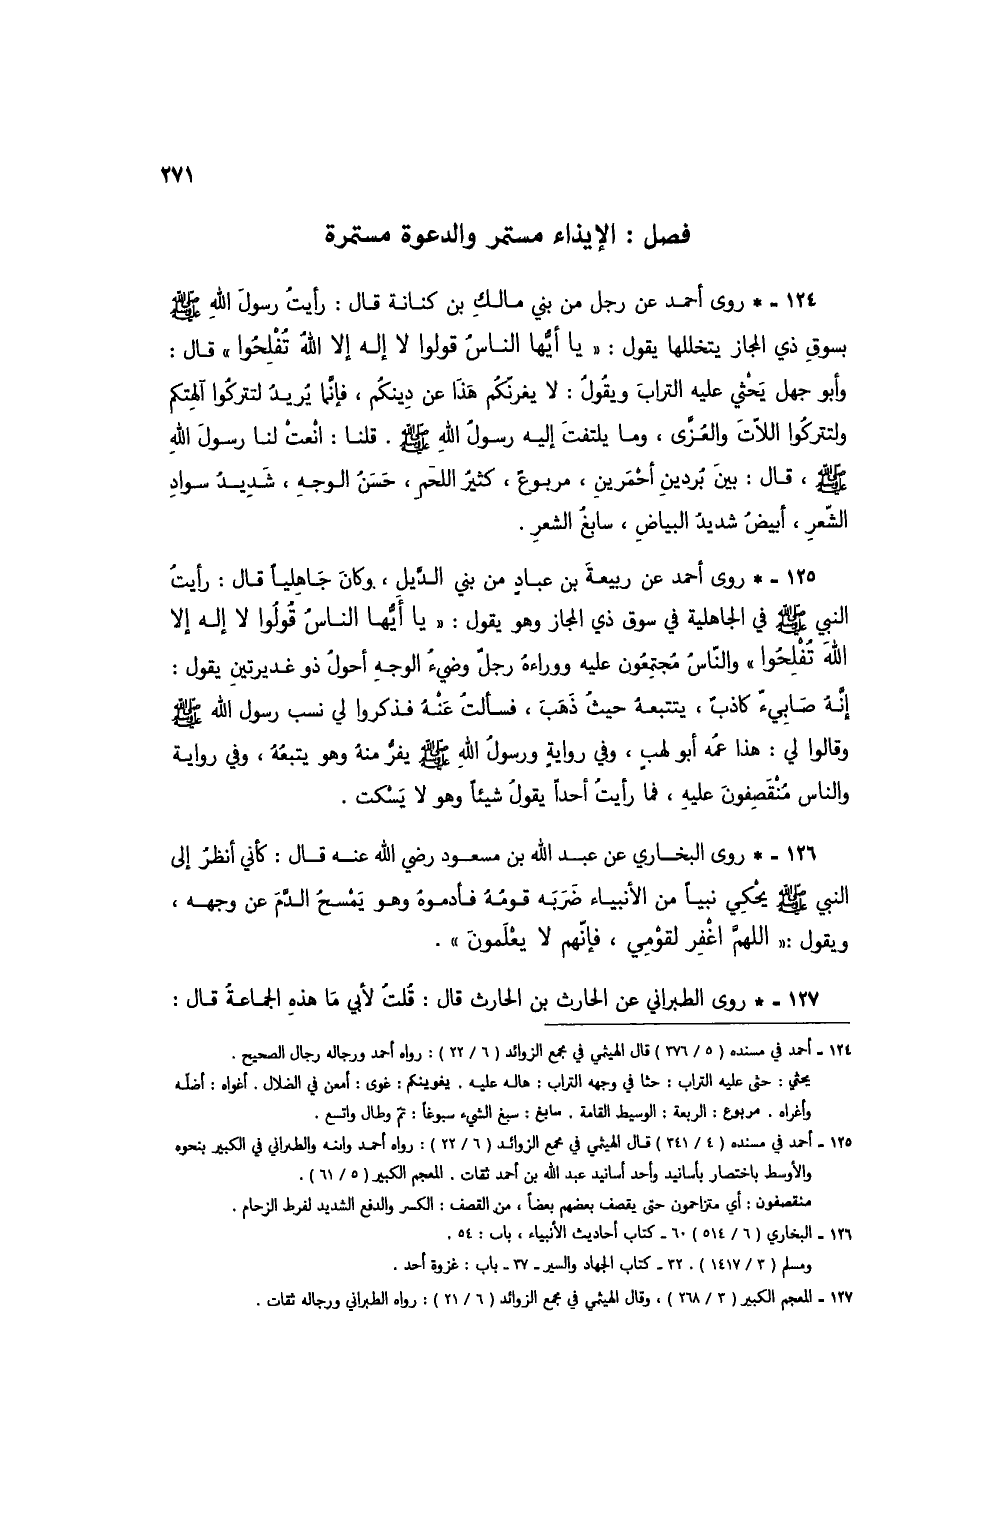 ٢٧١
فصل : الإيذاء مستمر والدعوة مستمرة
١٢٤ - * روى أحمد عن رجل من بني مالكِ بن كنانة قال : رأيتُ رسولَ اللهِ ﷺ
بسوقِ ذي المجاز يتخللها يقول : « يا أيُّها الناسُ قولوا لا إله إلا اللهُ تُفْلِحُوا » قال :
وأبو جهل يَحْثِي عليه الترابَ ويقُولُ : لا يغرنّكُم هَذَا عن دِينِكُم ، فإنَّما يُريدُ لتتركُوا آلهتكم
ولتتركُوا اللاّتَ والعُزَّى ، وما يلتفتَ إليه رسولُ اللهِ ﷺ . قلنا : انْعتْ لنا رسولَ اللهِ
ﷺ ، قال : بينَ بُردينِ أحْمَرينِ ، مربوعٌ ، كثيرُ اللحْمِ ، حَسَنُ الوجهِ ، شَديدُ سوادِ
الشّعرِ ، أبيضُ شديدُ البياضِ ، سابغُ الشعرِ .
١٢٥ - * روى أحمد عن ربيعةَ بن عبادٍ من بني الدَّيلِ ، وكانَ جَاهِلياً قال : رأيتُ
النبي ﷺ في الجاهلية في سوق ذي المجاز وهو يقول : « يا أَيُّها الناسُ قُولُوا لا إله إلا
اللهَ تُفْلِحُوا » والنّاسُ مُجتمِعُون عليه ووراءهُ رجلٌ وضيءُ الوجهِ أحولُ ذو غديرتينِ يقول :
إنَّهُ صَابِيءٌ كاذبٌ ، يتتبعهُ حيثُ ذَهَبَ ، فسألتُ عَنْهُ فذكروا لي نسب رسول الله ﷺ
وقالوا لي : هذا عمُه أبو لهبٍ ، وفي روايةٍ ورسولُ اللهِ ﷺ يفرُّ منهُ وهو يتبعُهُ ، وفي رواية
والناس مُنْقَصِفونَ عليهِ ، فما رأيتُ أحداً يقولُ شيئاً وهو لا يَسْكت .
١٢٦ - * روى البخاري عن عبد الله بن مسعود رضي الله عنه قال : كأني أنظرُ إلى
النبي ﷺ يحْكِي نبياً من الأنبياء ضَرَبَه قومُهُ فأدموهُ وهو يَمْسحُ الدَّمَ عن وجهه ،
ويقول :« اللهمَّ اغْفِر لقوْمِي ، فإنّهم لا يعْلَمونَ » .
١٢٧ - * روى الطبراني عن الحارث بن الحارث قال : قُلتُ لأبي مَا هذهِ الجَماعةُ قال :
١٢٤ - أحمد في مسنده ( ٥ / ٣٧٦ ) قال الهيثمي في مجمع الزوائد ( ٦ / ٢٢ ) : رواه أحمد ورجاله رجال الصحيح .
يحثي : حثى عليه التراب : حثا في وجهه التراب : هاله عليه . يغوينكم : غوى : أمعن في الضلال . أغواه : أضلّه
وأغراه . مربوع : الربعة : الوسيط القامة . سابغ : سبغ الشيء سبوغاً : تمّ وطال واتسع .
١٢٥ - أحمد في مسنده ( ٤ / ٣٤١ ) قال الهيثمي في مجمع الزوائد ( ٦ / ٢٢ ) : رواه أحمد وابنه والطبراني في الكبير بنحوه
والأوسط باختصار بأسانيد وأحد أسانيد عبد الله بن أحمد ثقات . المعجم الكبير ( ٥ / ٦١ ) .
منقصفون : أي متزاحمون حتى يقصف بعضهم بعضاً ، من القصف : الكسر والدفع الشديد لفرط الزحام .
١٢٦ - البخاري ( ٦ / ٥١٤ ) ٦٠ - كتاب أحاديث الأنبياء ، باب : ٥٤ .
ومسلم ( ٣ / ١٤١٧ ) . ٣٢ - كتاب الجهاد والسير - ٣٧ - باب : غزوة أحد .
١٢٧ - المعجم الكبير ( ٣ / ٢٦٨ ) ، وقال الهيثمي في مجمع الزوائد ( ٦ / ٢١ ) : رواه الطبراني ورجاله ثقات .